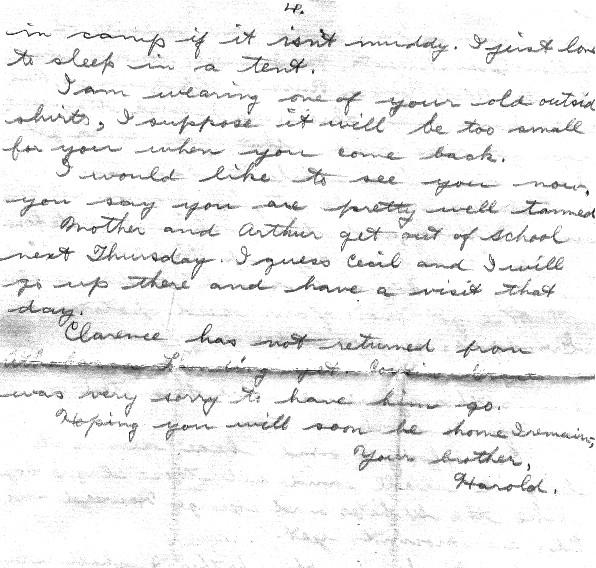 4.
in camp if it isn't muddy. I just love
to sleep in a tent.
I am wearing one of your old outsid
shirts, I suppose it will be too small
for you when you come back.
I would like to see you now,
you say you are pretty well tanned
Mother and Arthur get out of school
next Thursday. I guess Cecil and I will
go up there and have a visit that
day.
Clarence has not returned from
Landing yet. Cousin
was very sorry to have him go.
Hoping you will soon be home I remain,
Your brother,
Harold.